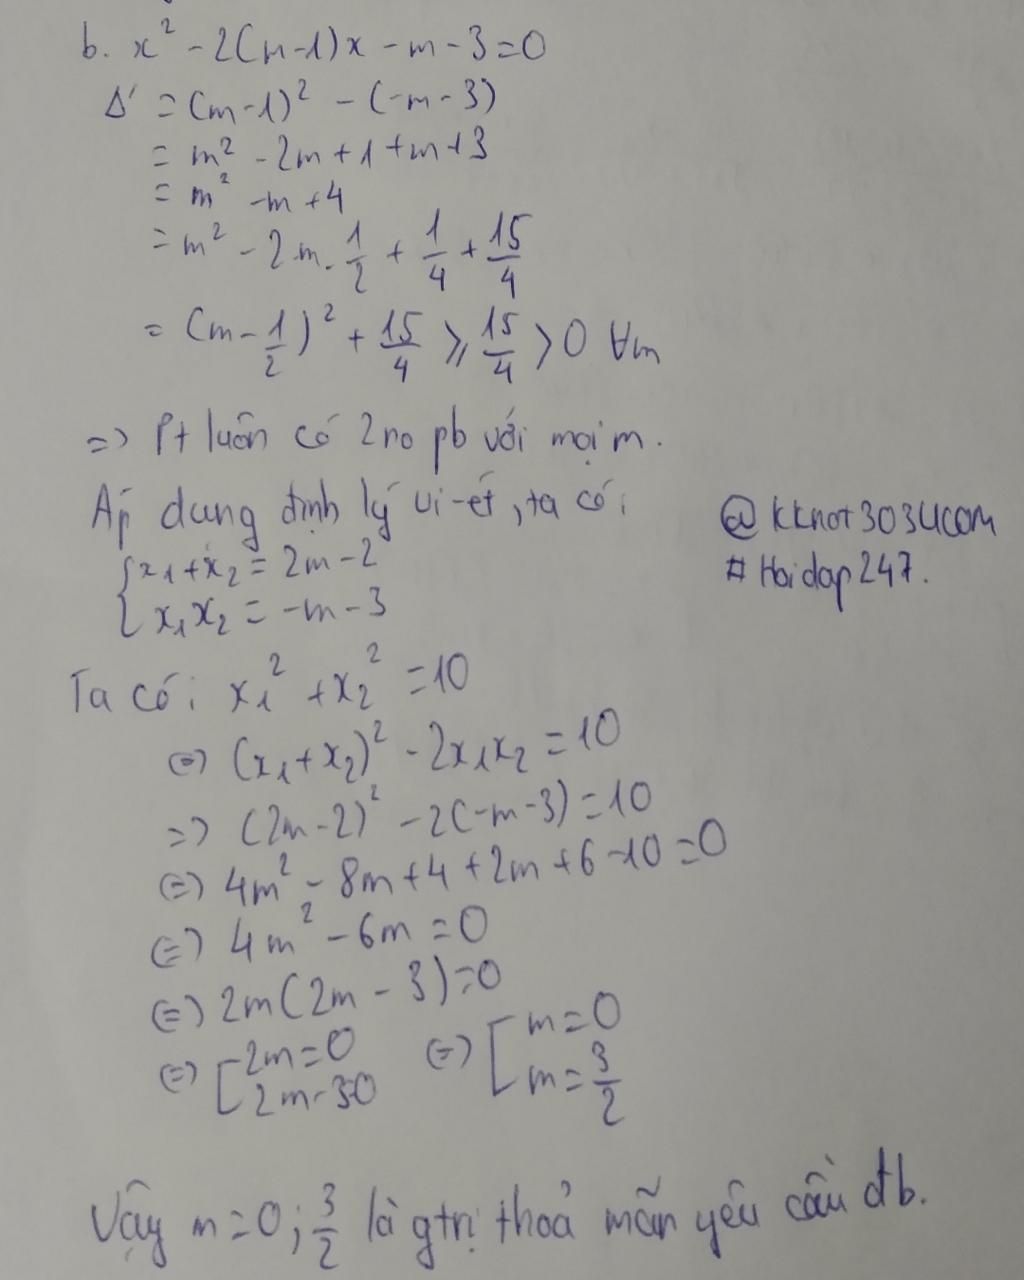 b. x² - 2(m-1)x - m - 3 = 0
Δ' = (m-1)² - (-m-3)
= m² - 2m + 1 + m + 3
= m² - m + 4
= m² - 2m. 1/2 + 1/4 + 15/4
= (m - 1/2)² + 15/4 ≥ 15/4 > 0 ∀m
=> Pt luôn có 2 no pb với mọi m.
Áp dung định lý vi-ét, ta có:
{ x₁ + x₂ = 2m - 2
{ x₁x₂ = -m - 3
@kknot3034com
#Hoidap247.
Ta có: x₁² + x₂² = 10
(=) (x₁+x₂)² - 2x₁x₂ = 10
=> (2m-2)² - 2(-m-3) = 10
(=) 4m² - 8m + 4 + 2m + 6 - 10 = 0
(=) 4m² - 6m = 0
(=) 2m(2m - 3) = 0
(=) [ 2m = 0 (=) [ m = 0
[ 2m - 3=0 [ m = 3/2
Vậy m = 0; 3/2 là gtrị thoả mãn yêu cầu đb.